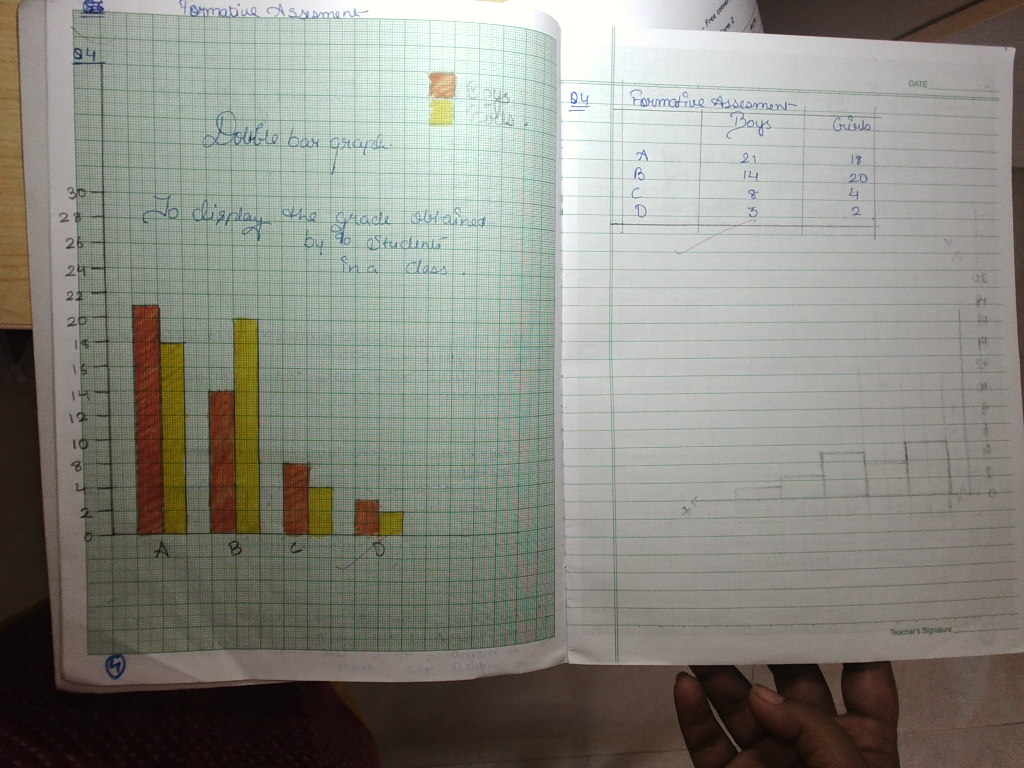 Formative Assesment
Q4
Boys
Girls.
Double bar graph.
To display the grade obtained
by 90 Students
in a class.
30
28
26
24
22
20
18
16
14
12
10
8
4
2
0
A B C D
4
Free
Term 2
DATE
Q4 Formative Assesment
Boys Girls
A 21 18
B 14 20
C 8 4
D 3 2
Teacher's Signature